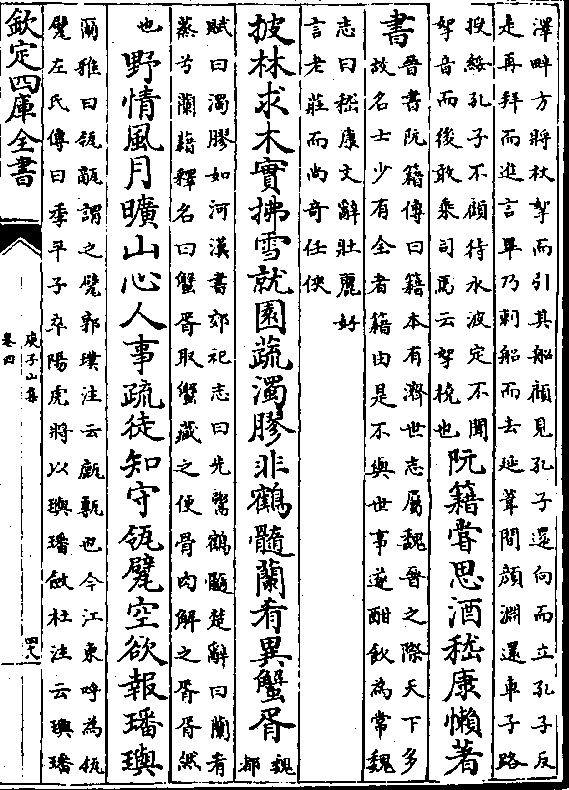 澤畔方將杖拏而引其船顧見孔子還向而立孔子反
走再拜而進言畢乃刺船而去延葦間顔淵還車子路
授綏孔子不顧待水波定不聞
拏音而後敢乘司馬云拏橈也
阮籍嘗思酒嵇康懶著
書
晉書阮籍傳曰籍本有濟世志屬魏晉之際天下多
故名士少有全者籍由是不與世事遂酣飲為常魏
志曰嵇康文辭壯麗好
言老莊而尚奇任俠
披林求木實拂雪就園蔬濁膠非鶴髓蘭肴異蟹胥
魏
都
賦曰濁膠如河漢書郊祀志曰先鬻鶴髓楚辭曰蘭肴
蒸兮蘭藉釋名曰蟹胥取蟹藏之使骨肉解之胥胥然
也
野情風月曠山心人事疏徒知守瓴甓空欲報璠璵
爾雅曰瓴甋謂之甓郭璞注云㼾甎也今江東呼為瓴
甓左氏傳曰季平子卒陽虎將以璵璠斂杜注云璵璠
欽定四庫全書
庾子山集
卷四
四八